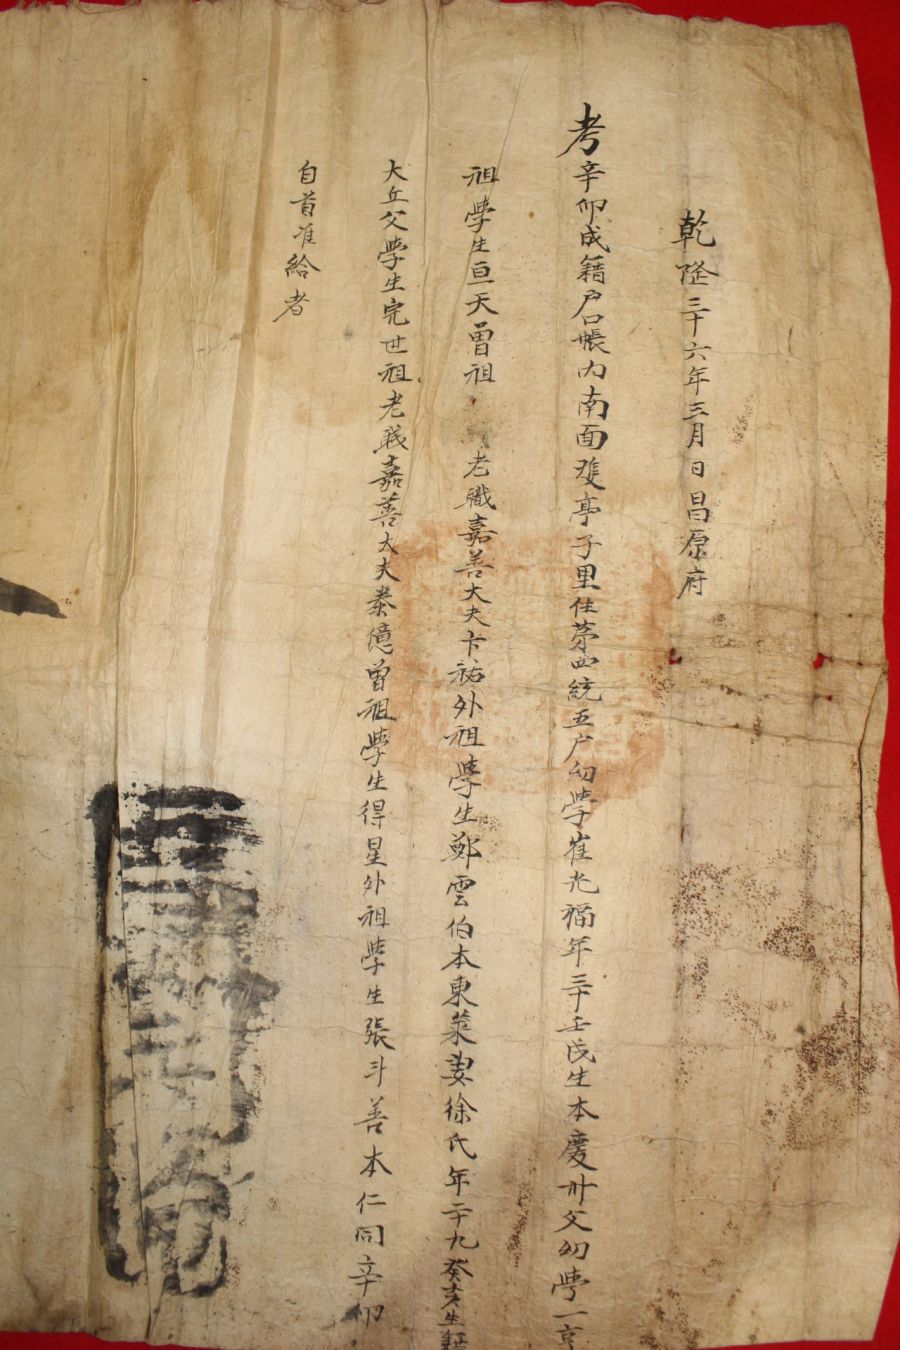 乾隆三十六年三月日昌原府
考辛卯成籍户口帳內南面雙亭子里住第四統五户幼學崔光福年三十壬戌生本慶州父幼學一亨
祖學生亘天曾祖老職嘉善大夫卞祐外祖學生鄭雲伯本東萊妻徐氏年二十九癸亥生籍
大丘父學生完世祖老職嘉善大夫泰億曾祖學生得星外祖學生張斗善本仁同辛卯
自首准給者